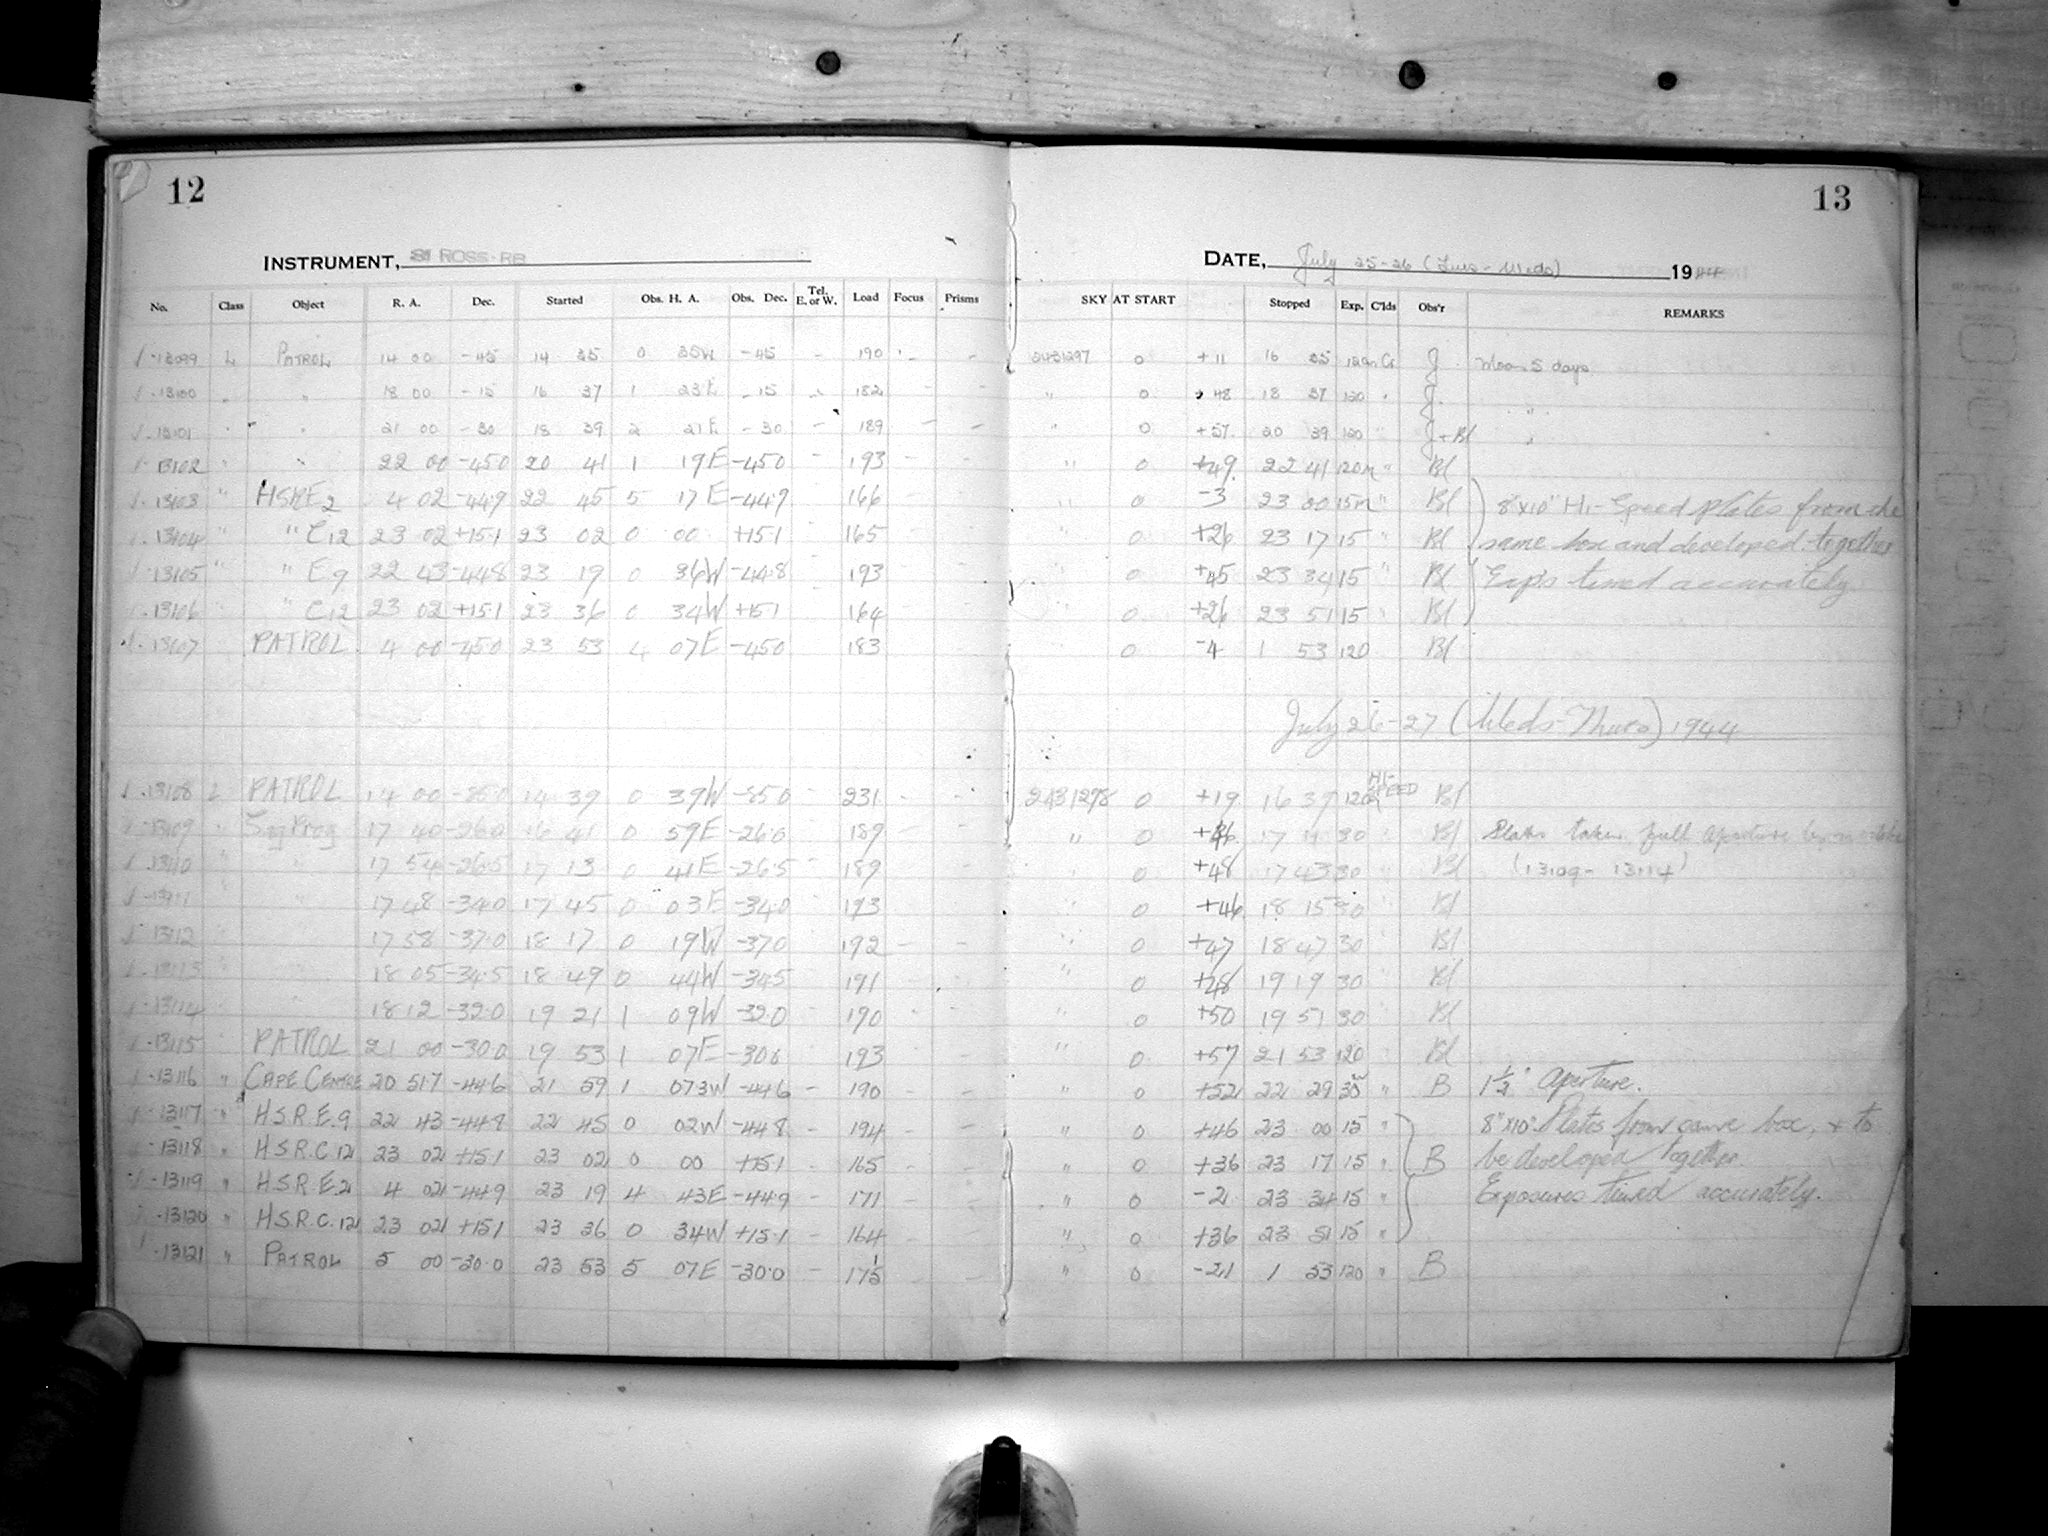 12
13
INSTRUMENT, ROSS-RB
DATE, July 25-26 ( 1944
No. Class Object R. A. Dec. Started Obs. H. A. Obs. Dec. Tel. E. or W. Load Focus Prisms SKY AT START Stopped Exp. C'lds Obs'r REMARKS
13099 L PATROL 14 00 -45 14 35 0 35W -45 190 2431297 0 +11 16 35 J Moon 5 days
13100 " " 18 00 -15 16 37 1 23E -15 182 " 0 +48 18 37 120 " J "
13101 " " 21 00 -30 18 39 2 21E -30 189 " 0 +57 20 39 120 " J+Bl "
13102 " " 22 00 -450 20 41 1 19E -450 193 " 0 +49 22 41 120m " Bl
13103 " HSRE2 4 02 -449 22 45 5 17E -449 166 " 0 -3 23 00 15m " Bl 8"x10" Hi-Speed plates from the
13104 " " C12 23 02 +15.1 23 02 0 00 +15.1 165 " 0 +26 23 17 15 " Bl same box and developed together
13105 " " E9 22 43 -448 23 19 0 36W -44.8 193 " 0 +45 23 34 15 " Bl Exp's timed accurately
13106 " C12 23 02 +15.1 23 36 0 34W +151 164 " 0 +26 23 51 15 " Bl
13107 PATROL 4 00 -450 23 53 4 07E -450 183 0 -4 1 53 120 Bl
July 26-27 (Weds-Thurs) 1944
13108 L PATROL 14 00 14 39 0 39W -350 231 - - 2431298 0 +19 16 39 120 HI-SPEED Bl
13109 " 17 40 -260 16 41 0 59E -260 189 " 0 17 11 30 " Bl Plates taken full aperture by mistake
13110 " " 17 54 -26.5 17 13 0 41E -26.5 189 " 0 +48 17 43 30 " Bl (13109 - 13114)
13111 " 17 48 -340 17 45 0 03E -340 193 " 0 +46 18 15 30 " Bl
13112 " 17 58 -37.0 18 17 0 19W -370 192 - - " 0 +47 18 47 30 " Bl
13113 " " 18 05 -34.5 18 49 0 44W -345 191 - - " 0 +48 19 19 30 " Bl
13114 " 18 12 -32.0 19 21 1 09W -320 190 - - " 0 +50 19 51 30 " Bl
13115 PATROL 21 00 -300 19 53 1 07E -300 193 - - " 0 +57 21 53 120 " Bl
13116 " CAPE CENTRE 20 51.7 -446 21 59 1 073W -446 - 190 - - " 0 +52 22 29 30 " B 1½" Aperture.
13117 " H.S.R.E.9 22 43 -448 22 45 0 02W -448 - 194 - - " 0 +46 23 00 15 " 8"x10" Plates from same box, + to
13118 " H.S.R.C.12 23 02 +15.1 23 02 0 00 +15.1 - 165 - - " 0 +36 23 17 15 " B be developed together.
13119 " H.S.R.E.2 4 02 -449 23 19 4 43E -449 - 171 - - " 0 -2 23 34 15 " Exposures timed accurately.
13120 " H.S.R.C.12 23 02 +15.1 23 36 0 34W +15.1 - 164 - - " 0 +36 23 51 15 "
13121 " PATROL 5 00 -30.0 23 53 5 07E -30.0 - 175 - - " 0 -21 1 53 120 " B